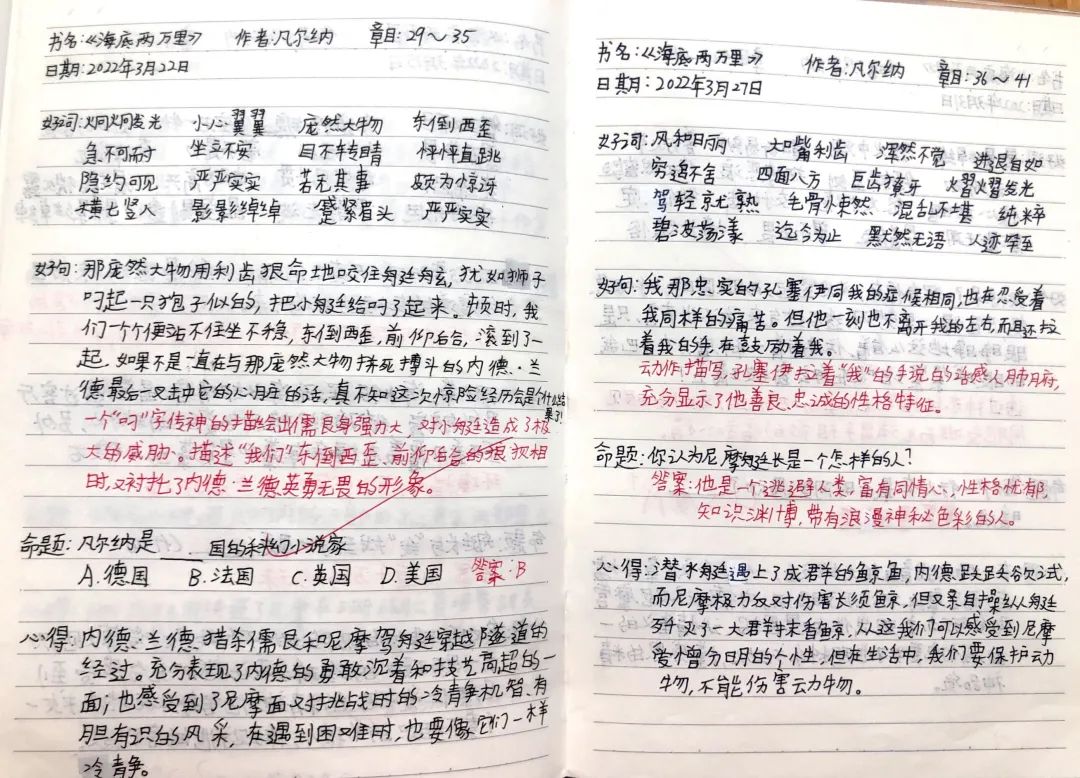 书名:《海底两万里》 作者:凡尔纳 章目:29~35
日期:2022年3月22日
好词:炯炯发光 小心翼翼 庞然大物 东倒西歪
急不可耐 坐立不安 目不转睛 怦怦直跳
隐约可见 严严实实 若无其事 颇为惊讶
横七竖八 影影绰绰 蹙紧眉头 严严实实
好句:那庞然大物用利齿狠命地咬住舢舷,犹如狮子
叼起一只狍子似的,把小艇给叼了起来。顿时,我
们一个个便站不住坐不稳,东倒西歪,前仰后合,滚到了一
起。如果不是一直在与那庞然大物拼死搏斗的内德·兰
德最后一叉击中它的心脏的话,真不知这次惊险经历会是个什么结
果了!
一个“叼”字传神的描绘出儒艮身强力大,对小艇造成了极
大的威胁。描述“我们”东倒西歪、前仰后合的狼狈相
时,又衬托了内德·兰德英勇无畏的形象。
命题:凡尔纳是____国的科幻小说家
A.德国 B.法国 C.英国 D.美国 答案:B
心得:内德·兰德猎杀儒艮和尼摩驾艇穿越隧道的
经过。充分表现了内德的勇敢沉着和技艺高超的一
面;也感受到了尼摩面对挑战时的冷静机智、有
胆有识的风采,在遇到困难时,也要像它们一样
冷静。
书名:《海底两万里》 作者:凡尔纳 章目:36~41
日期:2022年3月27日
好词:风和日丽 大嘴利齿 浑然不觉 进退自如
穷追不舍 四面八方 巨齿獠牙 熠熠发光
驾轻就熟 毛骨悚然 混乱不堪 纯粹
碧波荡漾 迄今为止 默然无语 人迹罕至
好句:我那忠实的孔塞伊同我的症候相同,也在忍受着
我同样的痛苦。但他一刻也不离开我的左右,而且还拉
着我的手,在鼓励着我。
动作描写,孔塞伊拉着“我”的手说的话感人肺腑,
充分显示了他善良、忠诚的性格特征。
命题:你认为尼摩艇长是一个怎样的人?
答案:他是一个逃避人类、富有同情心、性格忧郁,
知识渊博,带有浪漫神秘色彩的人。
心得:潜水艇遇上了成群的鲸鱼,内德跃跃欲试,
而尼摩极力反对伤害长须鲸,但又亲自操纵艇
歼灭了一大群抹香鲸,从这我们可以感受到尼摩
爱憎分明的个性,但在生活中,我们要保护动
物,不能伤害动物。